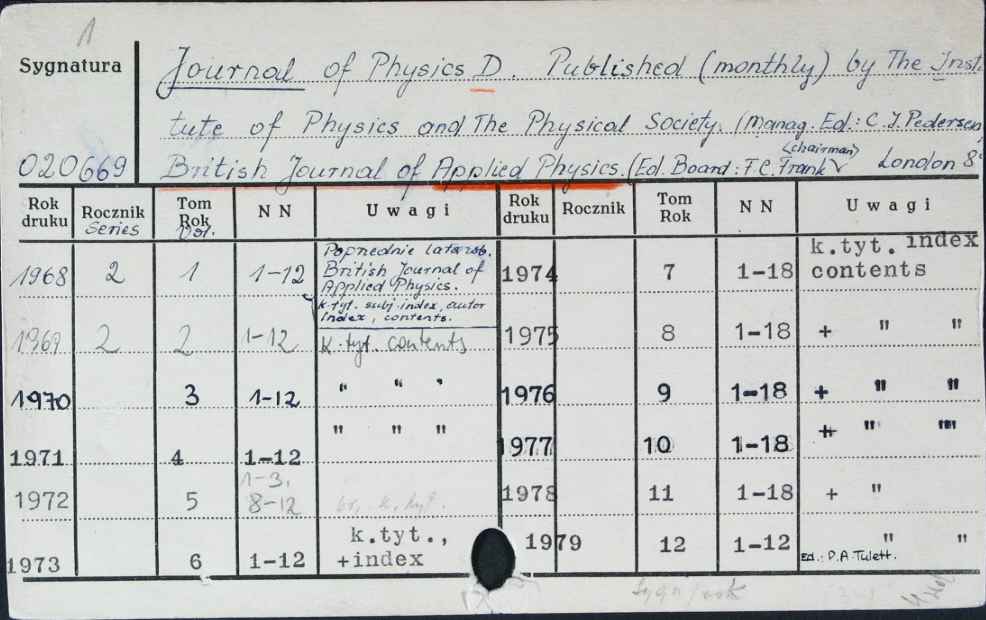 1
Sygnatura
Journal of Physics D. Published (monthly) by The Insti
tute of Physics and The Physical Society. (Manag. Ed.: C. J. Pedersen
020669
British Journal of Applied Physics. (Ed. Board: F.C. Frank (chairman) London 8°
Rok druku Rocznik Series Tom Rok Vol. NN Uwagi Rok druku Rocznik Tom Rok NN Uwagi
1968 2 1 1-12 Poprzednie lata zob. British Journal of Applied Physics. k.tyt. subj. index, autor index, contents.
1974 7 1-18 k.tyt. index contents
1969 2 2 1-12 k.tyt. contents
1975 8 1-18 + " "
1970 3 1-12 " " "
1976 9 1-18 + " "
1971 4 1-12 " " "
1977 10 1-18 + " "
1972 5 1-3, 8-12 k.tyt.
1978 11 1-18 + "
1973 6 1-12 k.tyt., +index
1979 12 1-12 " "
Ed.: D.A. Tulett.